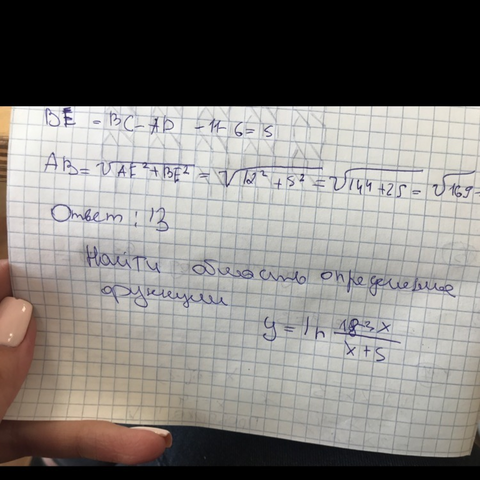 BE = BC - AD - 11 - 6 = 5
AB = √AE² + BE² = √12² + 5² = √144 + 25 = √169 =
Ответ: 13
Найти область определение
функции
y = ln (18-3x)/(x+5)